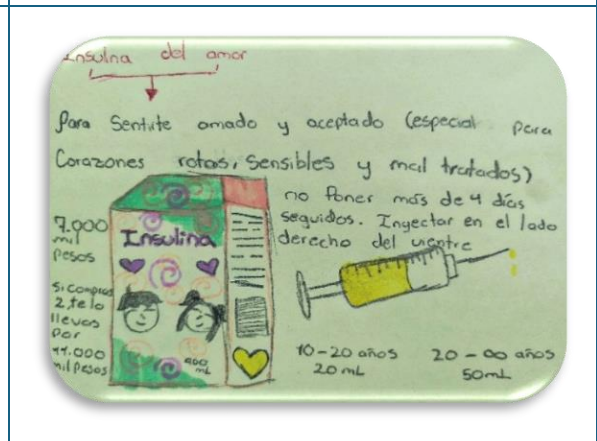 Insulina del amor
Para Sentirte amado y aceptado (especial para
Corazones rotos, Sensibles y mal tratados)
no Poner más de 4 días
seguidos. Inyectar en el lado
derecho del vientre
7.000
mil
pesos
si compras
2, te lo
llevas
por
11.000
mil pesos
Insulina
400
mL
10-20 años
20 mL
20-00 años
50mL